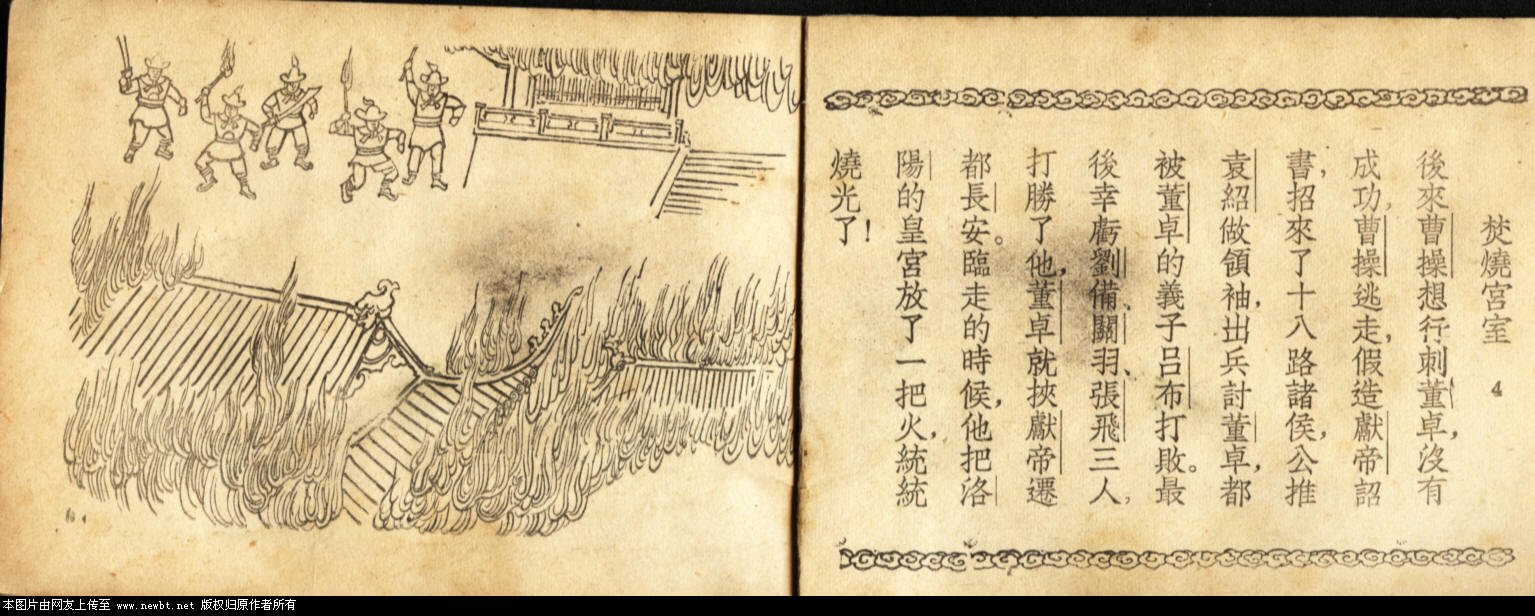 焚燒宮室 4
後來曹操想行刺董卓，沒有
成功，曹操逃走，假造獻帝詔
書，招來了十八路諸侯，公推
袁紹做領袖，出兵討董卓，都
被董卓的義子呂布打敗。最
後幸虧劉備、關羽、張飛三人，
打勝了他，董卓就挾獻帝遷
都長安。臨走的時候，他把洛
陽的皇宮放了一把火，統統
燒光了！
本图片由网友上传至 www.newbt.net 版权归原作者所有